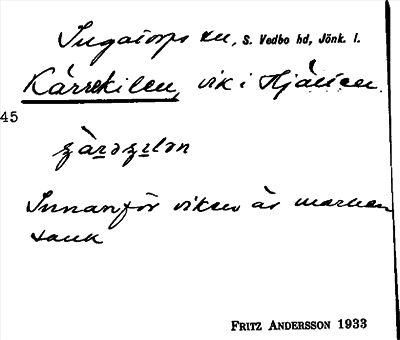 Ingatorps sn, S. Vedbo hd, Jönk. l.
Kärrekilen, vik i Hjälsen.
45
Innanför viken är marken
sank
FRITZ ANDERSSON 1933